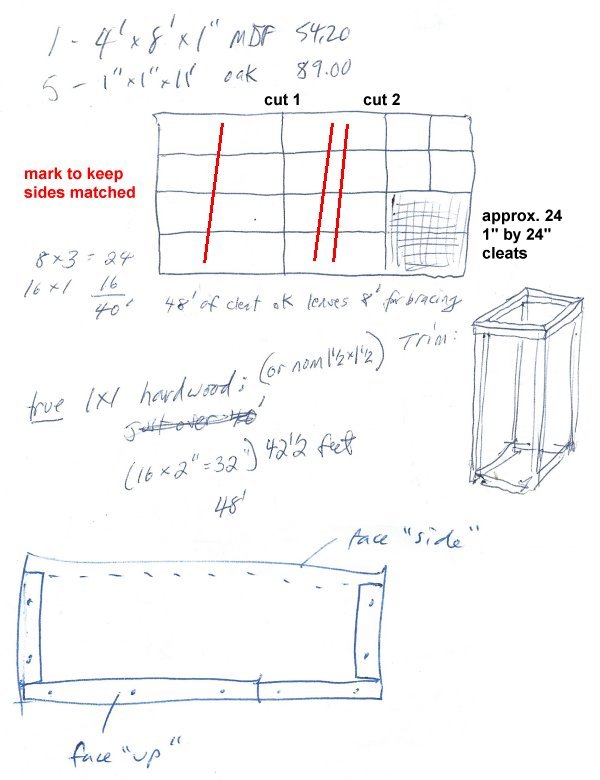 1 - 4' x 8' x 1" MDF 54.20
5 - 1" x 1" x 11' oak 89.00
cut 1 cut 2
mark to keep
sides matched
approx. 24
1" by 24"
cleats
8 x 3 = 24
16 x 1 16
40'
48' of cleat ok leaves 8' for bracing
Trim:
true 1x1 hardwood: (or nom 1 1/2 x 1 1/2)
just over 40'
(16 x 2" = 32") 42 1/2 feet
48'
face "side"
face "up"